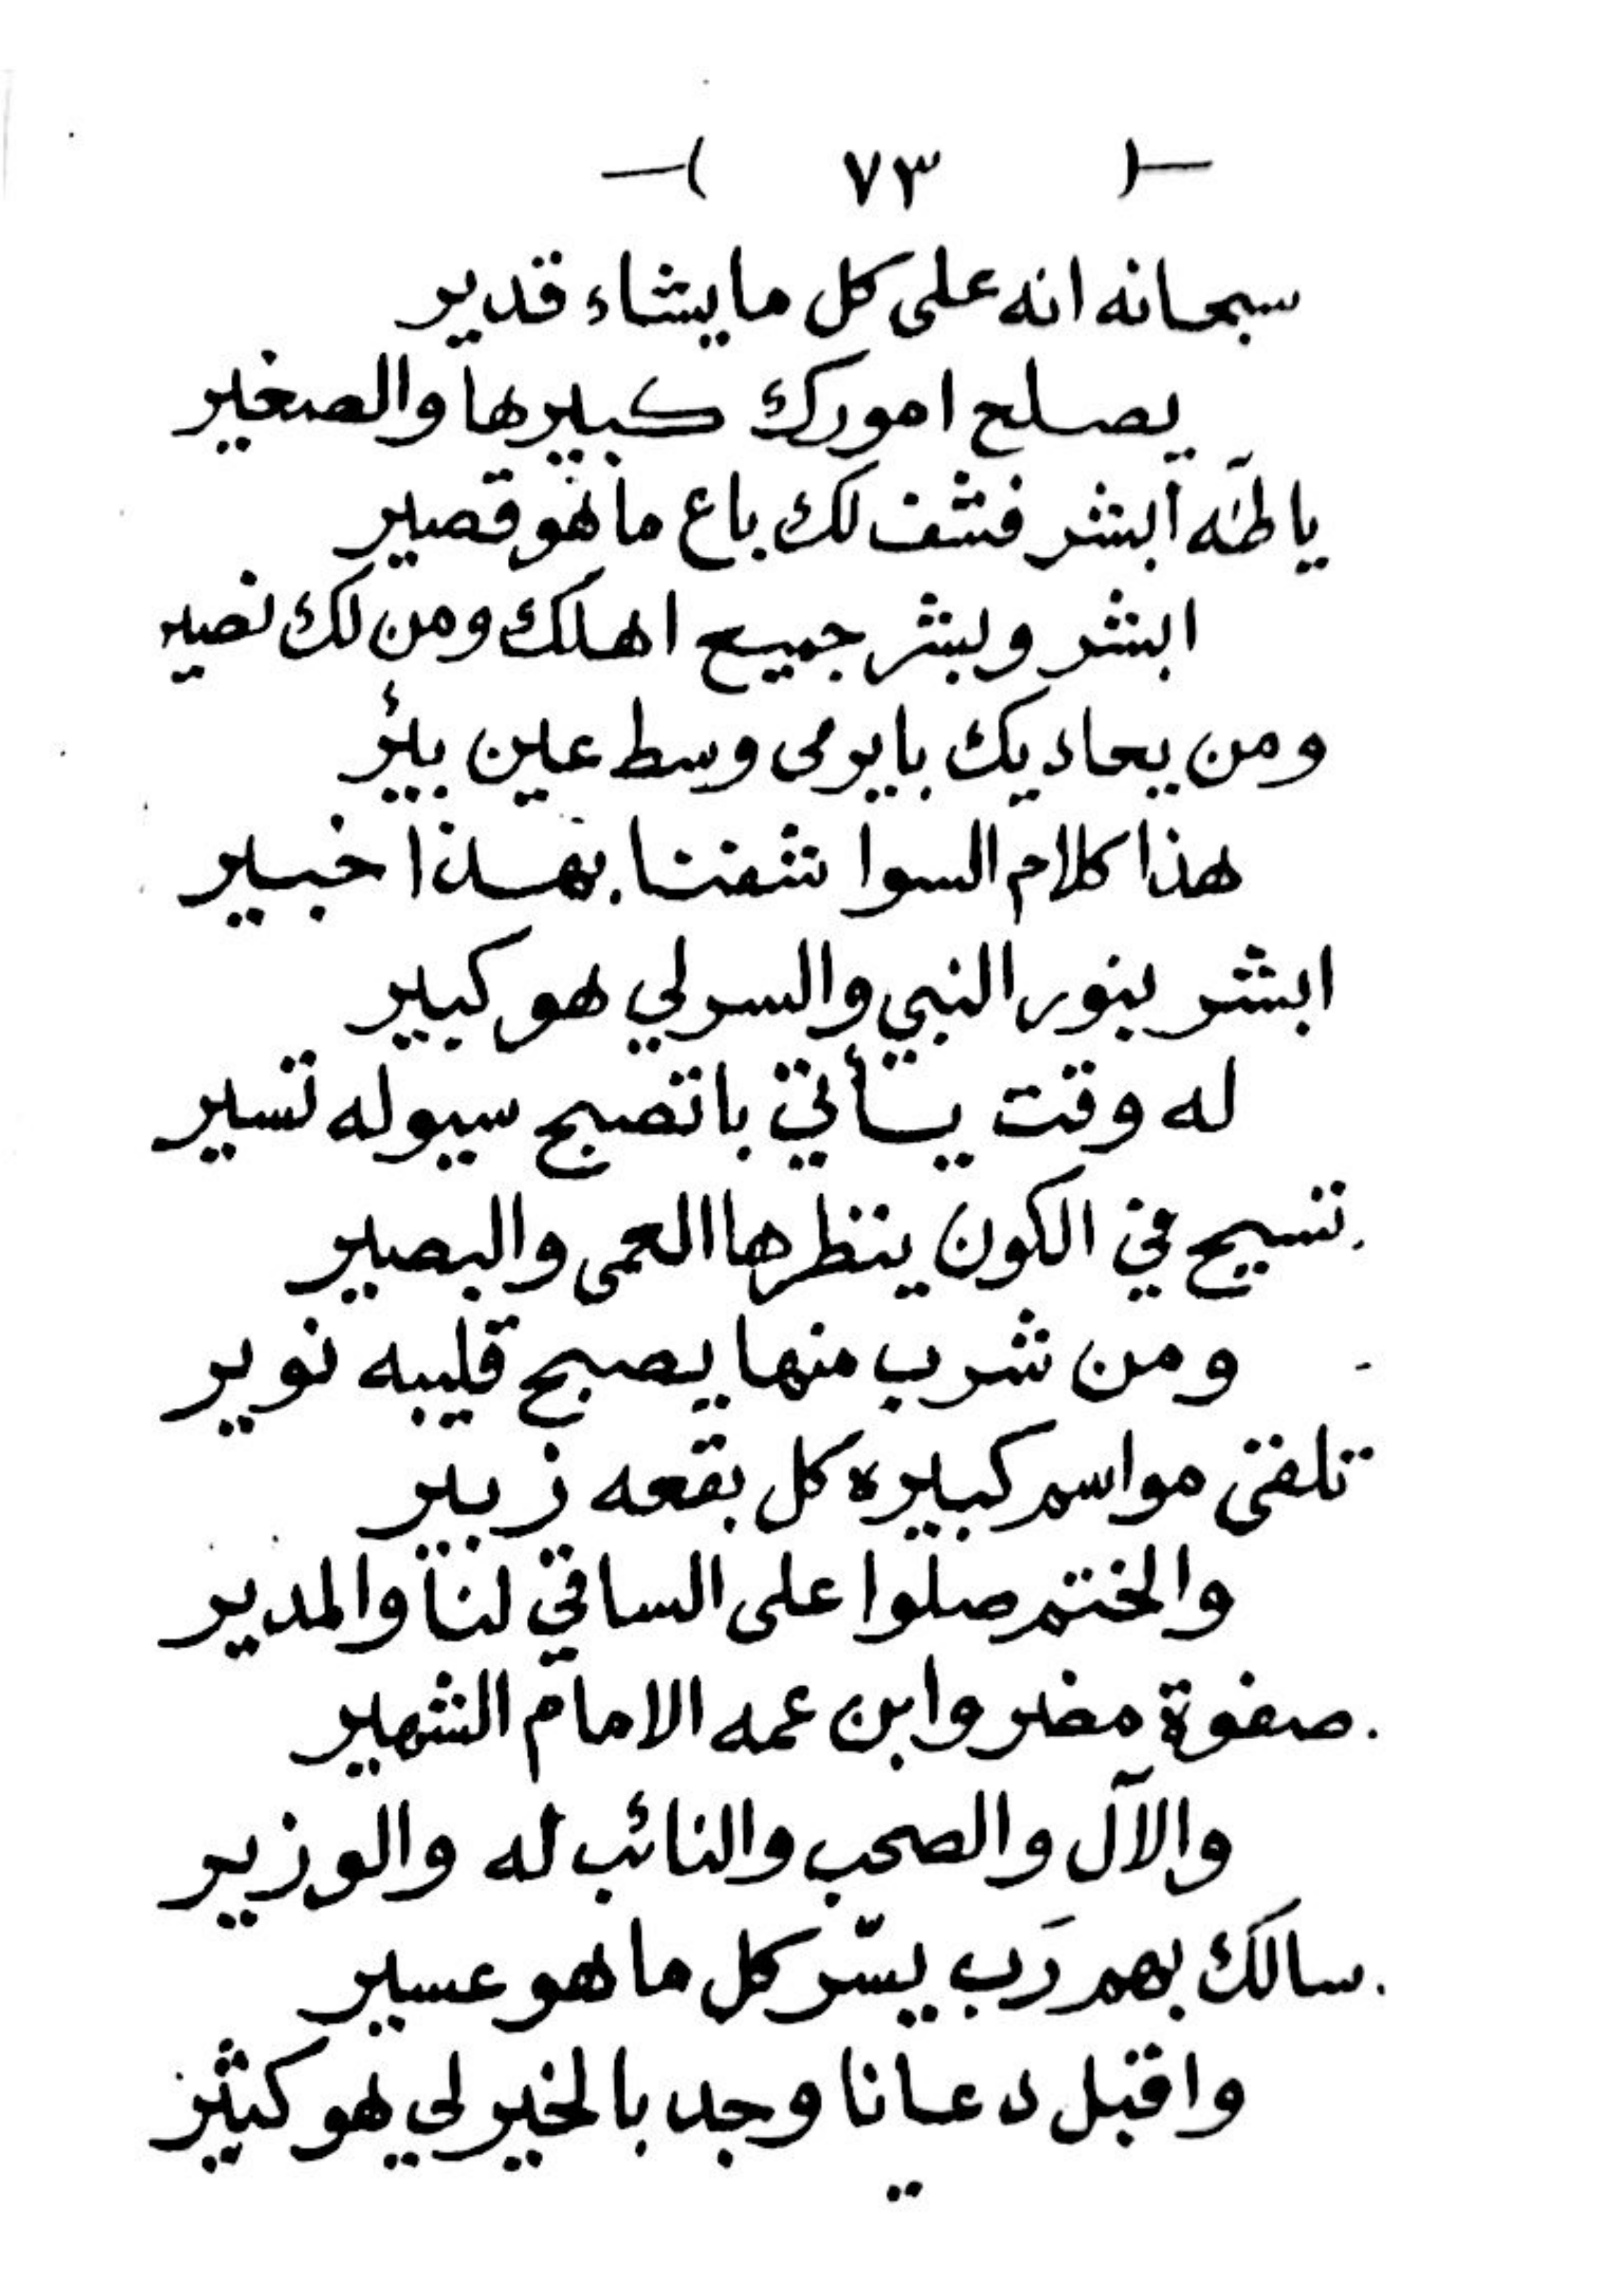 -( ٧٣ )-
سبحانه انه على كل ما يشاء قدير
يصلح امورك كبيرها والصغير
يا طه ابشر فشف لك باع ما هو قصير
ابشر وبشر جميع اهلك ومن لك نصير
ومن يعاديك بايرمى وسط عين بئر
هذا كلام السوا شفنا بهذا خبير
ابشر بنور النبي والسر لي هو كبير
له وقت يأتي باتصبح سيوله تسير
تسيح في الكون ينظرها العمى والبصير
ومن شرب منها يصبح قليبه نوير
تلقى مواسم كبيره كل بقعه زبير
والختم صلوا على الساقي لنا والمدير
صفوة مضر وابن عمه الامام الشهير
والآل والصحب والنائب له والوزير
سالك بهم رَب يسّر كل ما هو عسير
واقبل دعانا وجد بالخير لي هو كثير